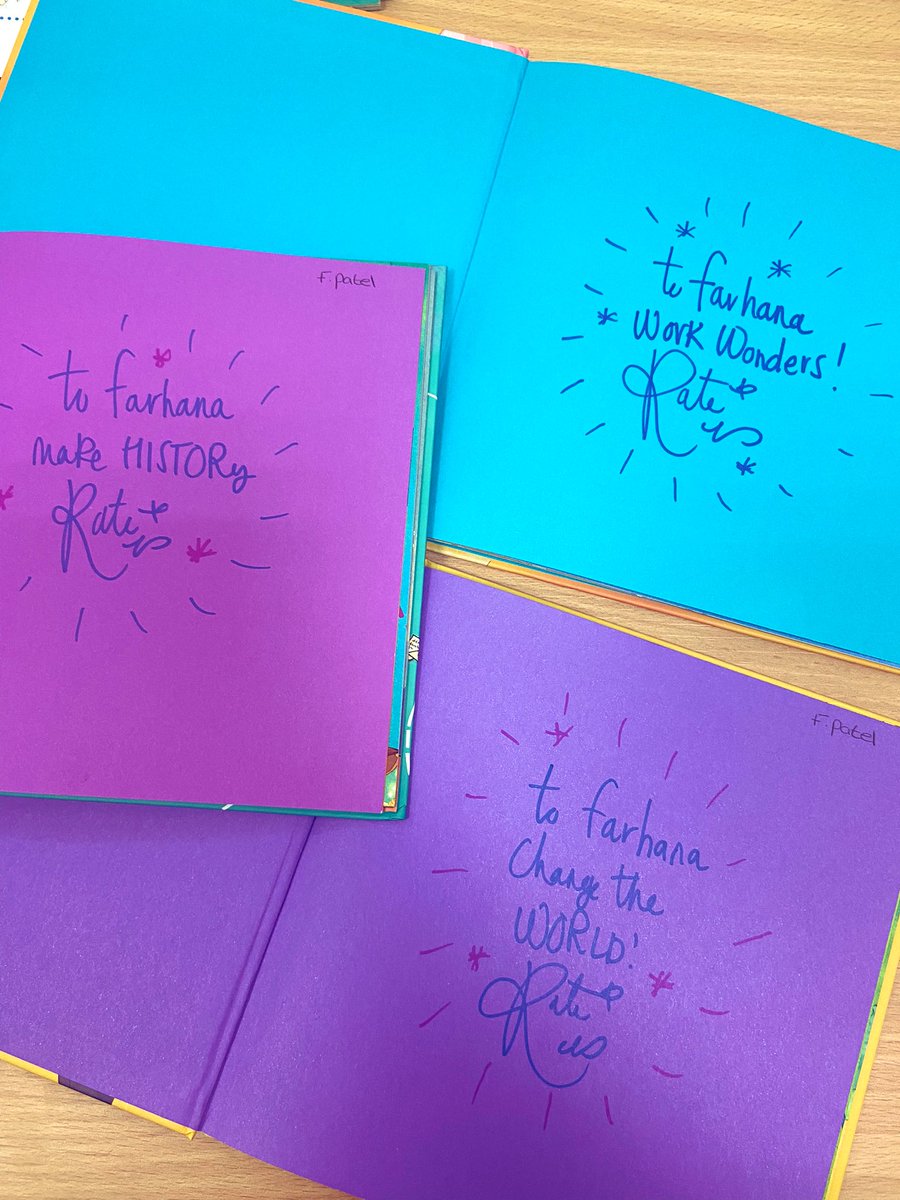 F. Patel
to farhana
make HISTORY
Kate
to farhana
Work Wonders!
Kate
F. Patel
to farhana
Change the
WORLD!
Kate